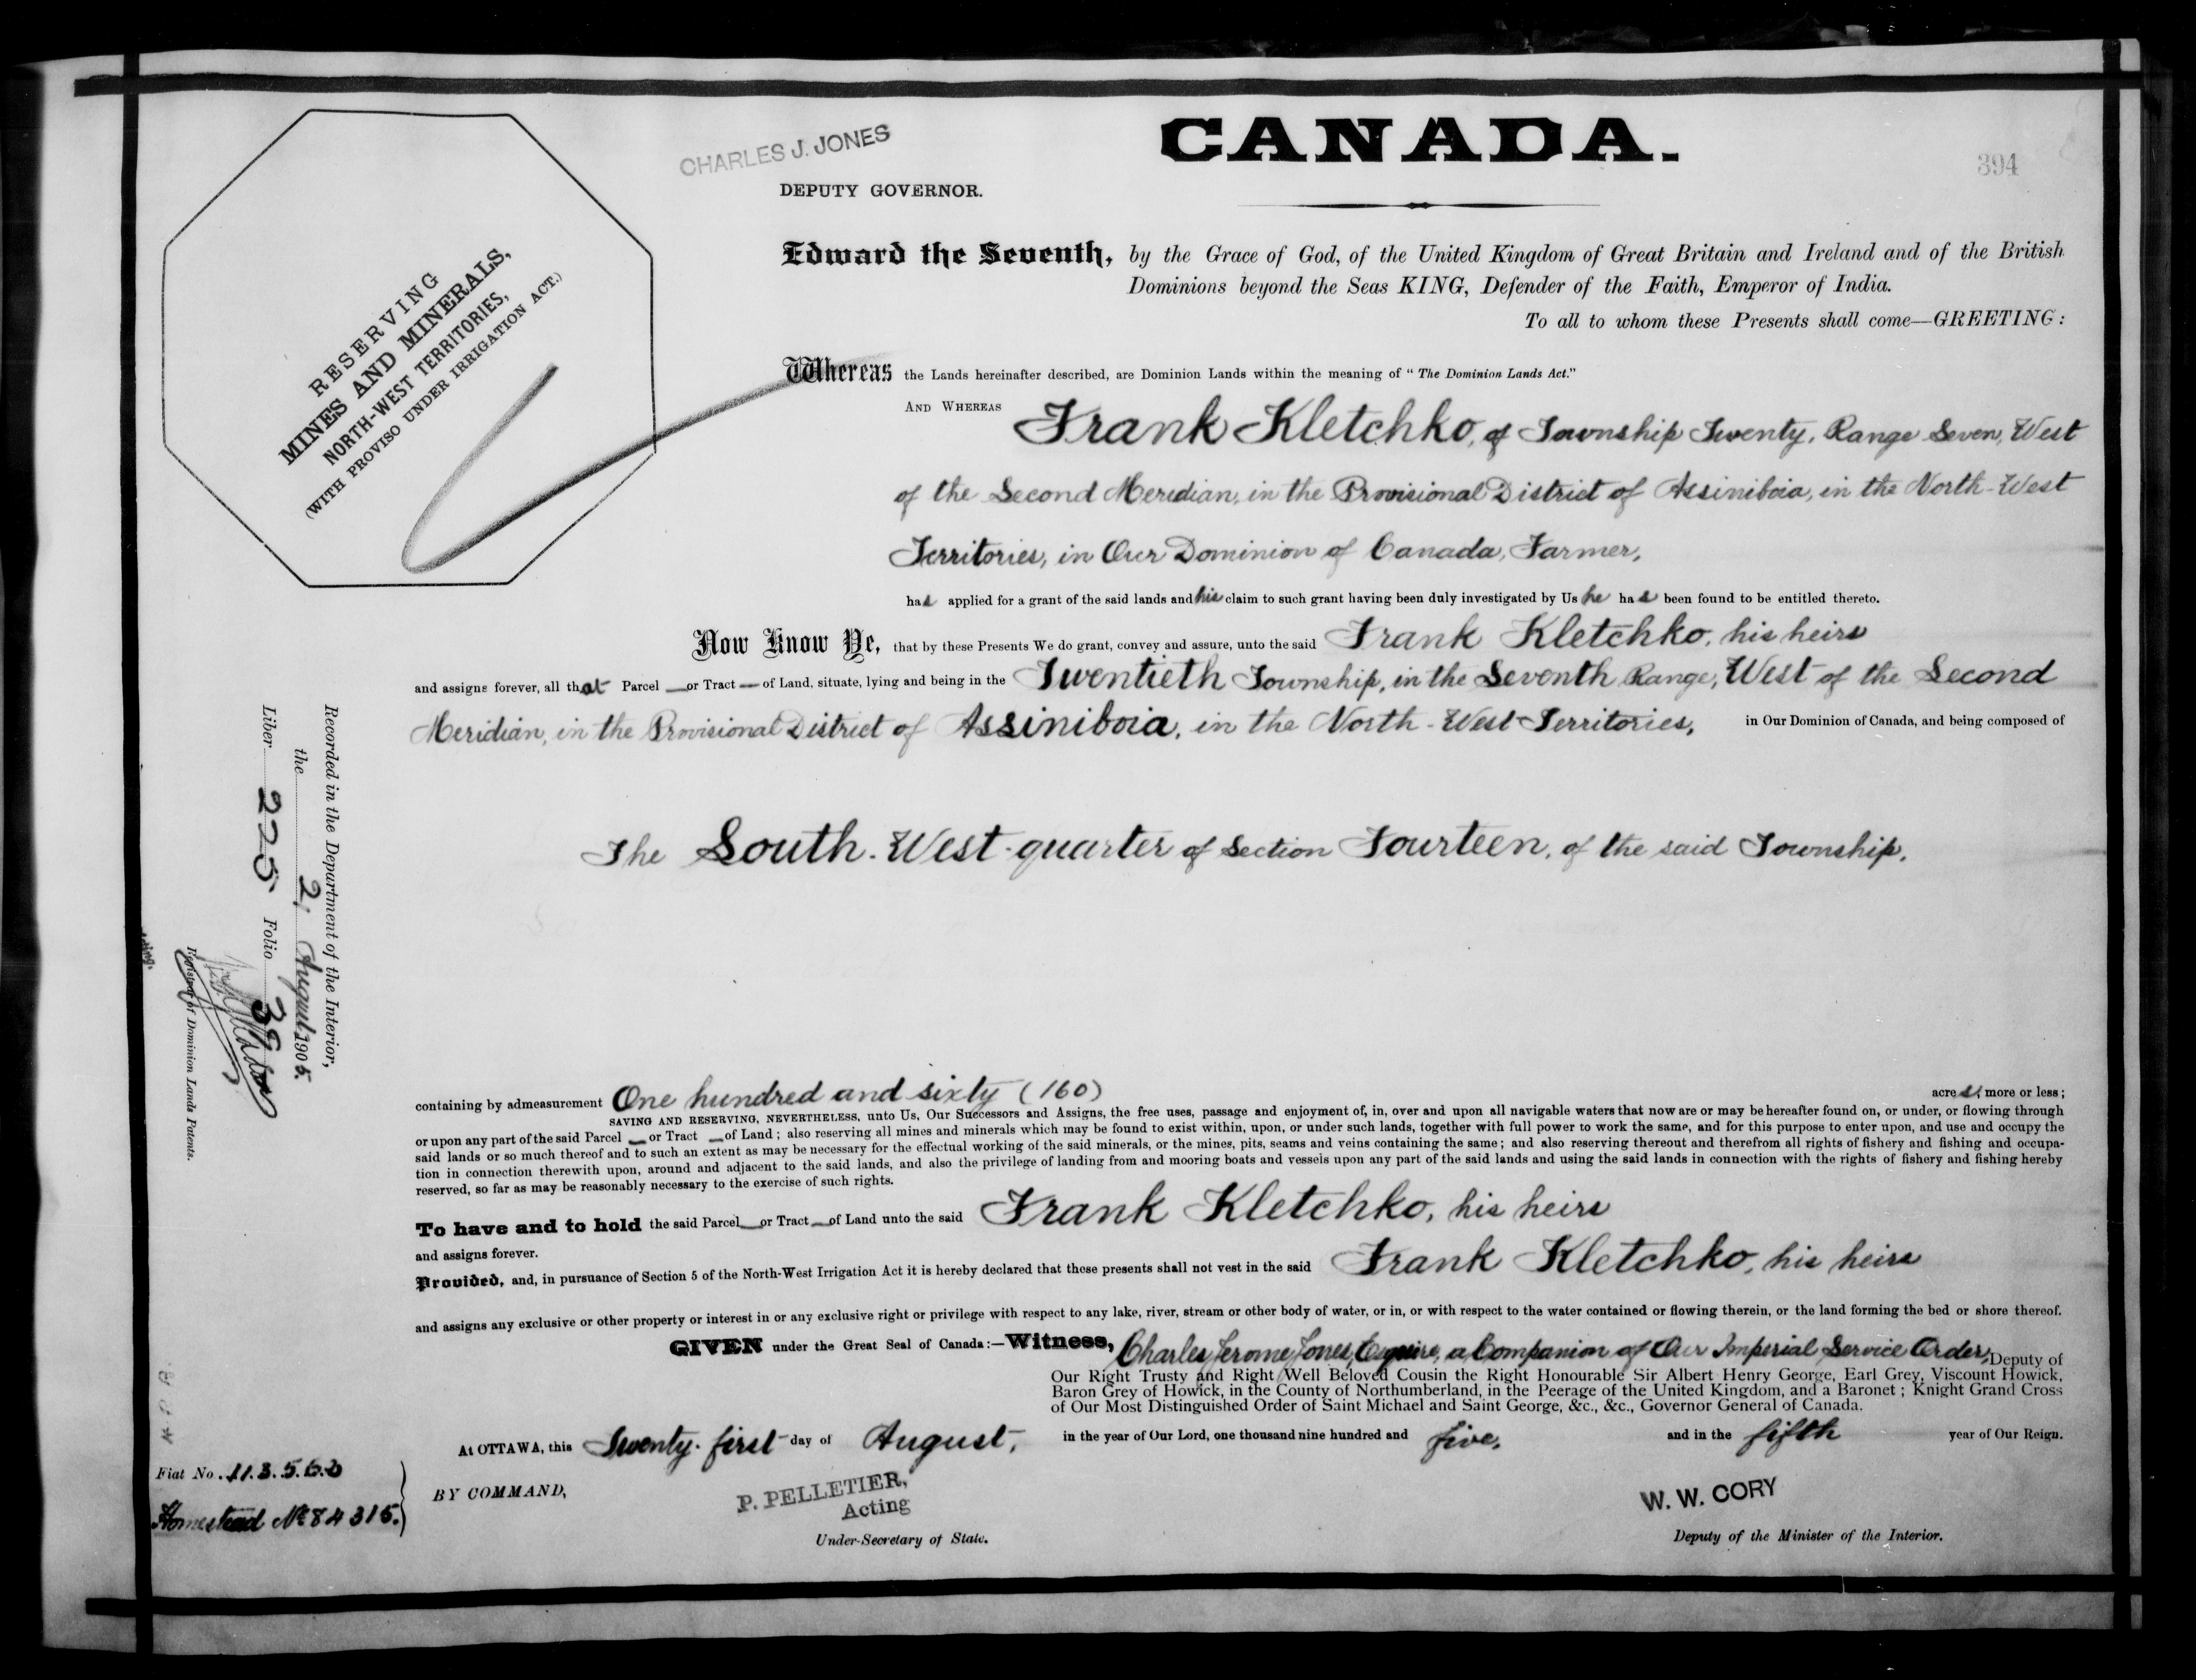 CANADA.
394
CHARLES J. JONES
DEPUTY GOVERNOR.
RESERVING
MINES AND MINERALS,
NORTH-WEST TERRITORIES,
(WITH PROVISO UNDER IRRIGATION ACT.)
Edward the Seventh, by the Grace of God, of the United Kingdom of Great Britain and Ireland and of the British
Dominions beyond the Seas KING, Defender of the Faith, Emperor of India.
To all to whom these Presents shall come—GREETING:
Whereas the Lands hereinafter described, are Dominion Lands within the meaning of "The Dominion Lands Act."
AND WHEREAS Frank Kletchko, of Township Twenty, Range Seven, West
of the Second Meridian, in the Provisional District of Assiniboia, in the North-West
Territories, in Our Dominion of Canada, Farmer,
has applied for a grant of the said lands and his claim to such grant having been duly investigated by Us he has been found to be entitled thereto.
Now Know Ye, that by these Presents We do grant, convey and assure, unto the said Frank Kletchko, his heirs
and assigns forever, all that Parcel — or Tract — of Land, situate, lying and being in the Twentieth Township, in the Seventh Range, West of the Second
Meridian, in the Provisional District of Assiniboia, in the North-West Territories, in Our Dominion of Canada, and being composed of
The South-West quarter of Section Fourteen, of the said Township,
containing by admeasurement One hundred and sixty (160) acres, more or less;
SAVING AND RESERVING, NEVERTHELESS, unto Us, Our Successors and Assigns, the free uses, passage and enjoyment of, in, over and upon all navigable waters that now are or may be hereafter found on, or under, or flowing through
or upon any part of the said Parcel — or Tract — of Land; also reserving all mines and minerals which may be found to exist within, upon, or under such lands, together with full power to work the same, and for this purpose to enter upon, and use and occupy the
said lands or so much thereof and to such an extent as may be necessary for the effectual working of the said minerals, or the mines, pits, seams and veins containing the same; and also reserving thereout and therefrom all rights of fishery and fishing and occupa-
tion in connection therewith upon, around and adjacent to the said lands, and also the privilege of landing from and mooring boats and vessels upon any part of the said lands and using the said lands in connection with the rights of fishery and fishing hereby
reserved, so far as may be reasonably necessary to the exercise of such rights.
To have and to hold the said Parcel — or Tract — of Land unto the said Frank Kletchko, his heirs
and assigns forever.
Provided, and, in pursuance of Section 5 of the North-West Irrigation Act it is hereby declared that these presents shall not vest in the said Frank Kletchko, his heirs
and assigns any exclusive or other property or interest in or any exclusive right or privilege with respect to any lake, river, stream or other body of water, or in, or with respect to the water contained or flowing therein, or the land forming the bed or shore thereof.
GIVEN under the Great Seal of Canada:—Witness, Charles Jerome Jones, Esquire, a Companion of Our Imperial Service Order, Deputy of
Our Right Trusty and Right Well Beloved Cousin the Right Honourable Sir Albert Henry George, Earl Grey, Viscount Howick,
Baron Grey of Howick, in the County of Northumberland, in the Peerage of the United Kingdom, and a Baronet; Knight Grand Cross
of Our Most Distinguished Order of Saint Michael and Saint George, &c., &c., Governor General of Canada.
At OTTAWA, this Twenty-first day of August, in the year of Our Lord, one thousand nine hundred and five, and in the fifth year of Our Reign.
BY COMMAND,
P. PELLETIER,
Acting
Under-Secretary of State.
W. W. CORY
Deputy of the Minister of the Interior.
Recorded in the Department of the Interior,
the August 1905.
Liber 225 Folio
Registrar of Dominion Lands Patents.
Fiat No. 113560
Homestead No 84315.